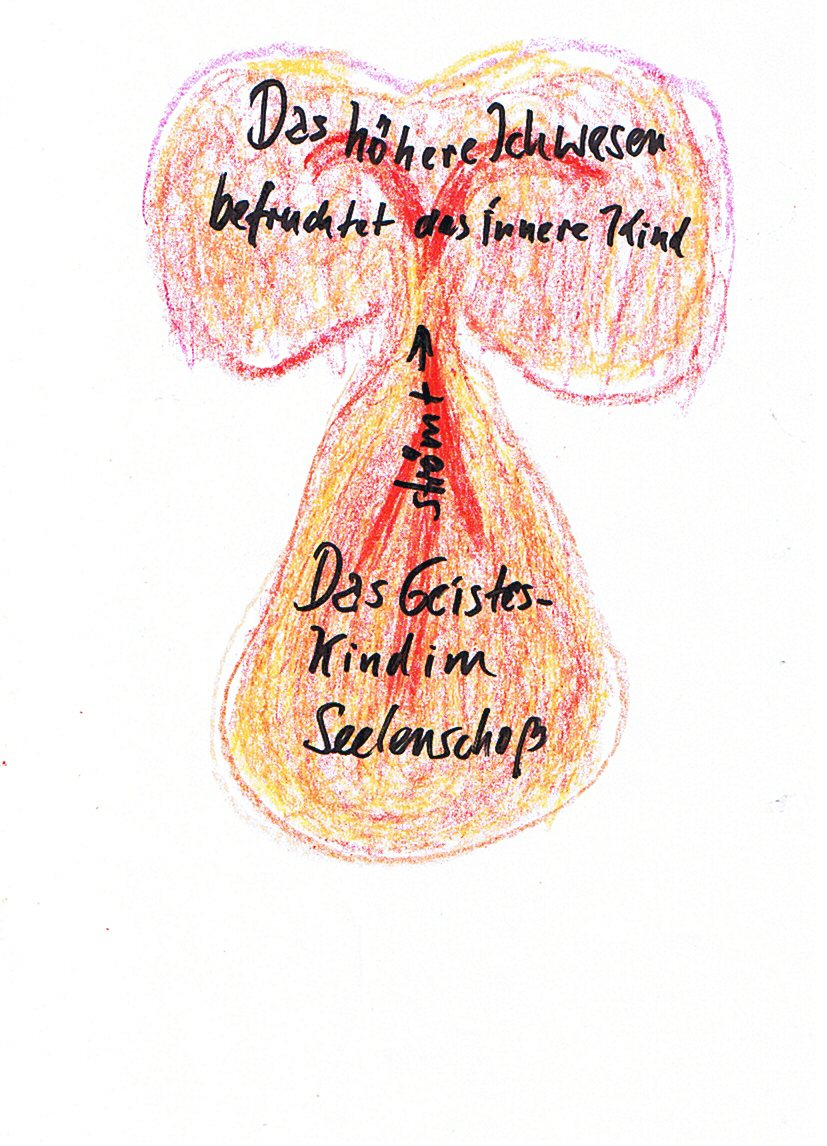 Das höhere Ichwesen
befruchtet das innere Kind
strömt
Das Geistes-
Kind im
Seelenschoß